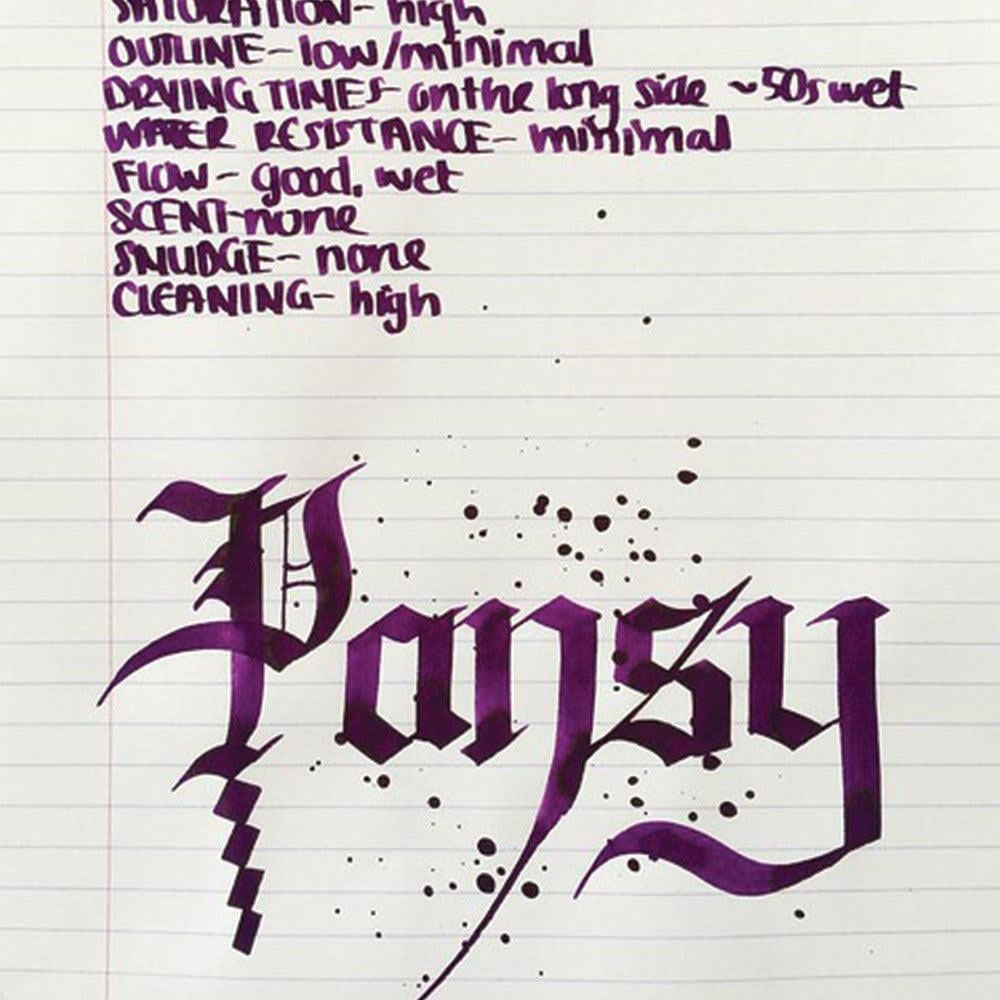 SATURATION- high
OUTLINE- low/minimal
DRYING TIMES- on the long side ~50s wet
WATER RESISTANCE- minimal
FLOW- good, wet
SCENT-none
SMUDGE- none
CLEANING- high
Pansy